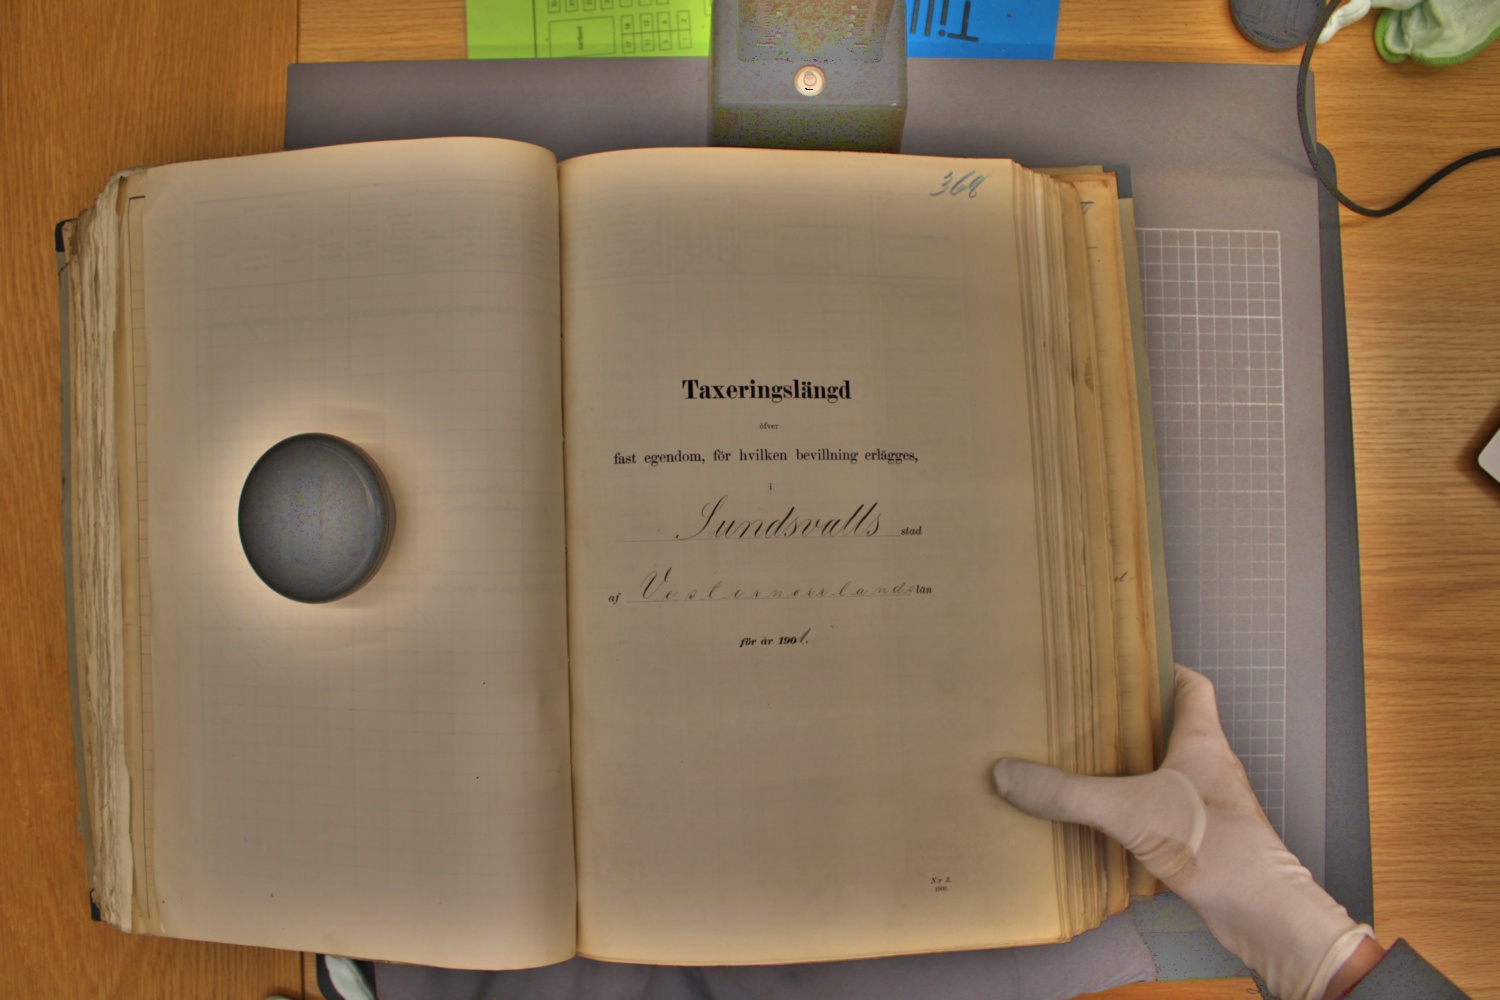 Till
368
Taxeringslängd
öfver
fast egendom, för hvilken bevillning erlägges,
i
Sundsvalls stad
af Vesternorrlands län
för år 1901.
N:r 3.
1900.